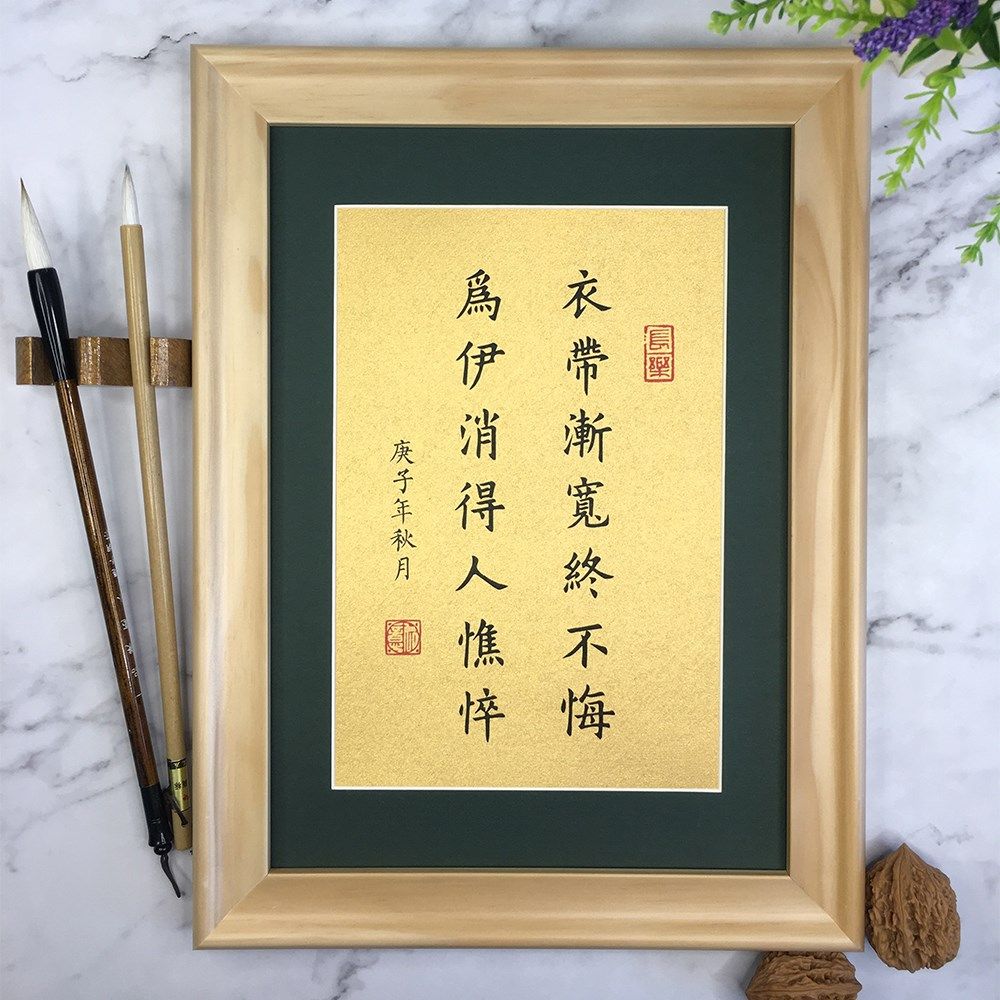 長樂
衣帶漸寬終不悔
爲伊消得人憔悴
庚子年秋月